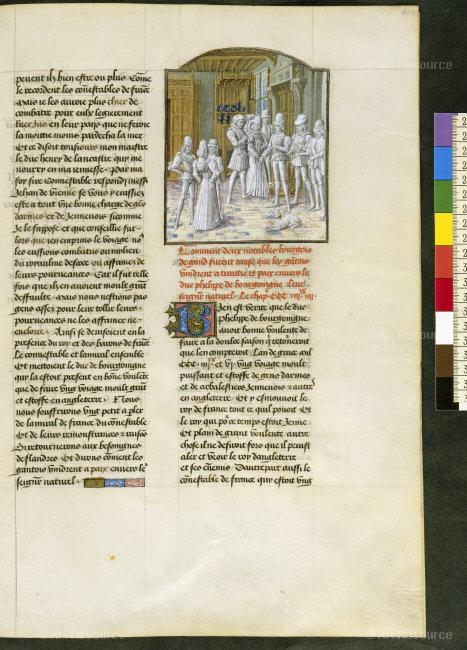 peuent ilz bien estre ou plus Come
le recordent les conestables de frãce
Mais ie les auroie plus chier de
combatre pour eulx legierement
en leur pays que ie feroie
la moittie moins pardecha la mer
Et ce disoit tousiours mon maistre
le duc henry de lancastre qui me
nourry en ma ieunesse
Jehan de vienne se vous feussies
est a tout vne bonne charge de gens
darmes et de
le suppose et que conseillie fut
lors que ien emprins le voiage
les eussions combatus ou
du royaulme desfaix ou affamez de
leurs pourueances Car il fut telle
fois que ilz en auoient moult grãt
deffaulte Mais nous nestions pas
gens assez pour leur tollir leurs
pourueances ne les affamer ne
enclorre Ainsi se deuisoient en la
presence du roy et des barons de frãce
Le connestable et lamiral ensemble
Et mettoient le duc de bourgoigne
qui la estoit present en bõne voulente
que de faire vng voiage moult grãt
et estoffe en angleterre Nous
nous souffrerons vng petit a pler
de lamiral de france du conestable
et de leurs remonstrances et raisons
Si retournerons aux besongnes
de flandres Et dirons comment les
gantois vindrent a paix enuers le
seigneur naturel
Comment deux notables bourgois
de gand furent cause que les gãtois
vindrent a traittie et paix enuers le
duc phelippe de bourgoingne Leur
seigneur naturel Le chap
Bien est verite que le duc
phelippe de bourgoingne
auoit bonne voulente de
faire a la doulce saison q̃ retourneroit
que len comptoit Lan de grace mil
CCC iiii et vi vng voiage moult
puissant et estoffe de gens darmes
et de arbalestriers Jenneuois
en angleterre Et y esmouuoit le
roy de france tout ce quil pouoit Et
le roy qui po' ce temps estoit Jenne
Et plain de grant voulente autre
chose il ne desiroit fors que il peust
aler et veoir le roy dangleterre
et ses ennemis Daultrepart aussi le
conestable de france qui estoit vng